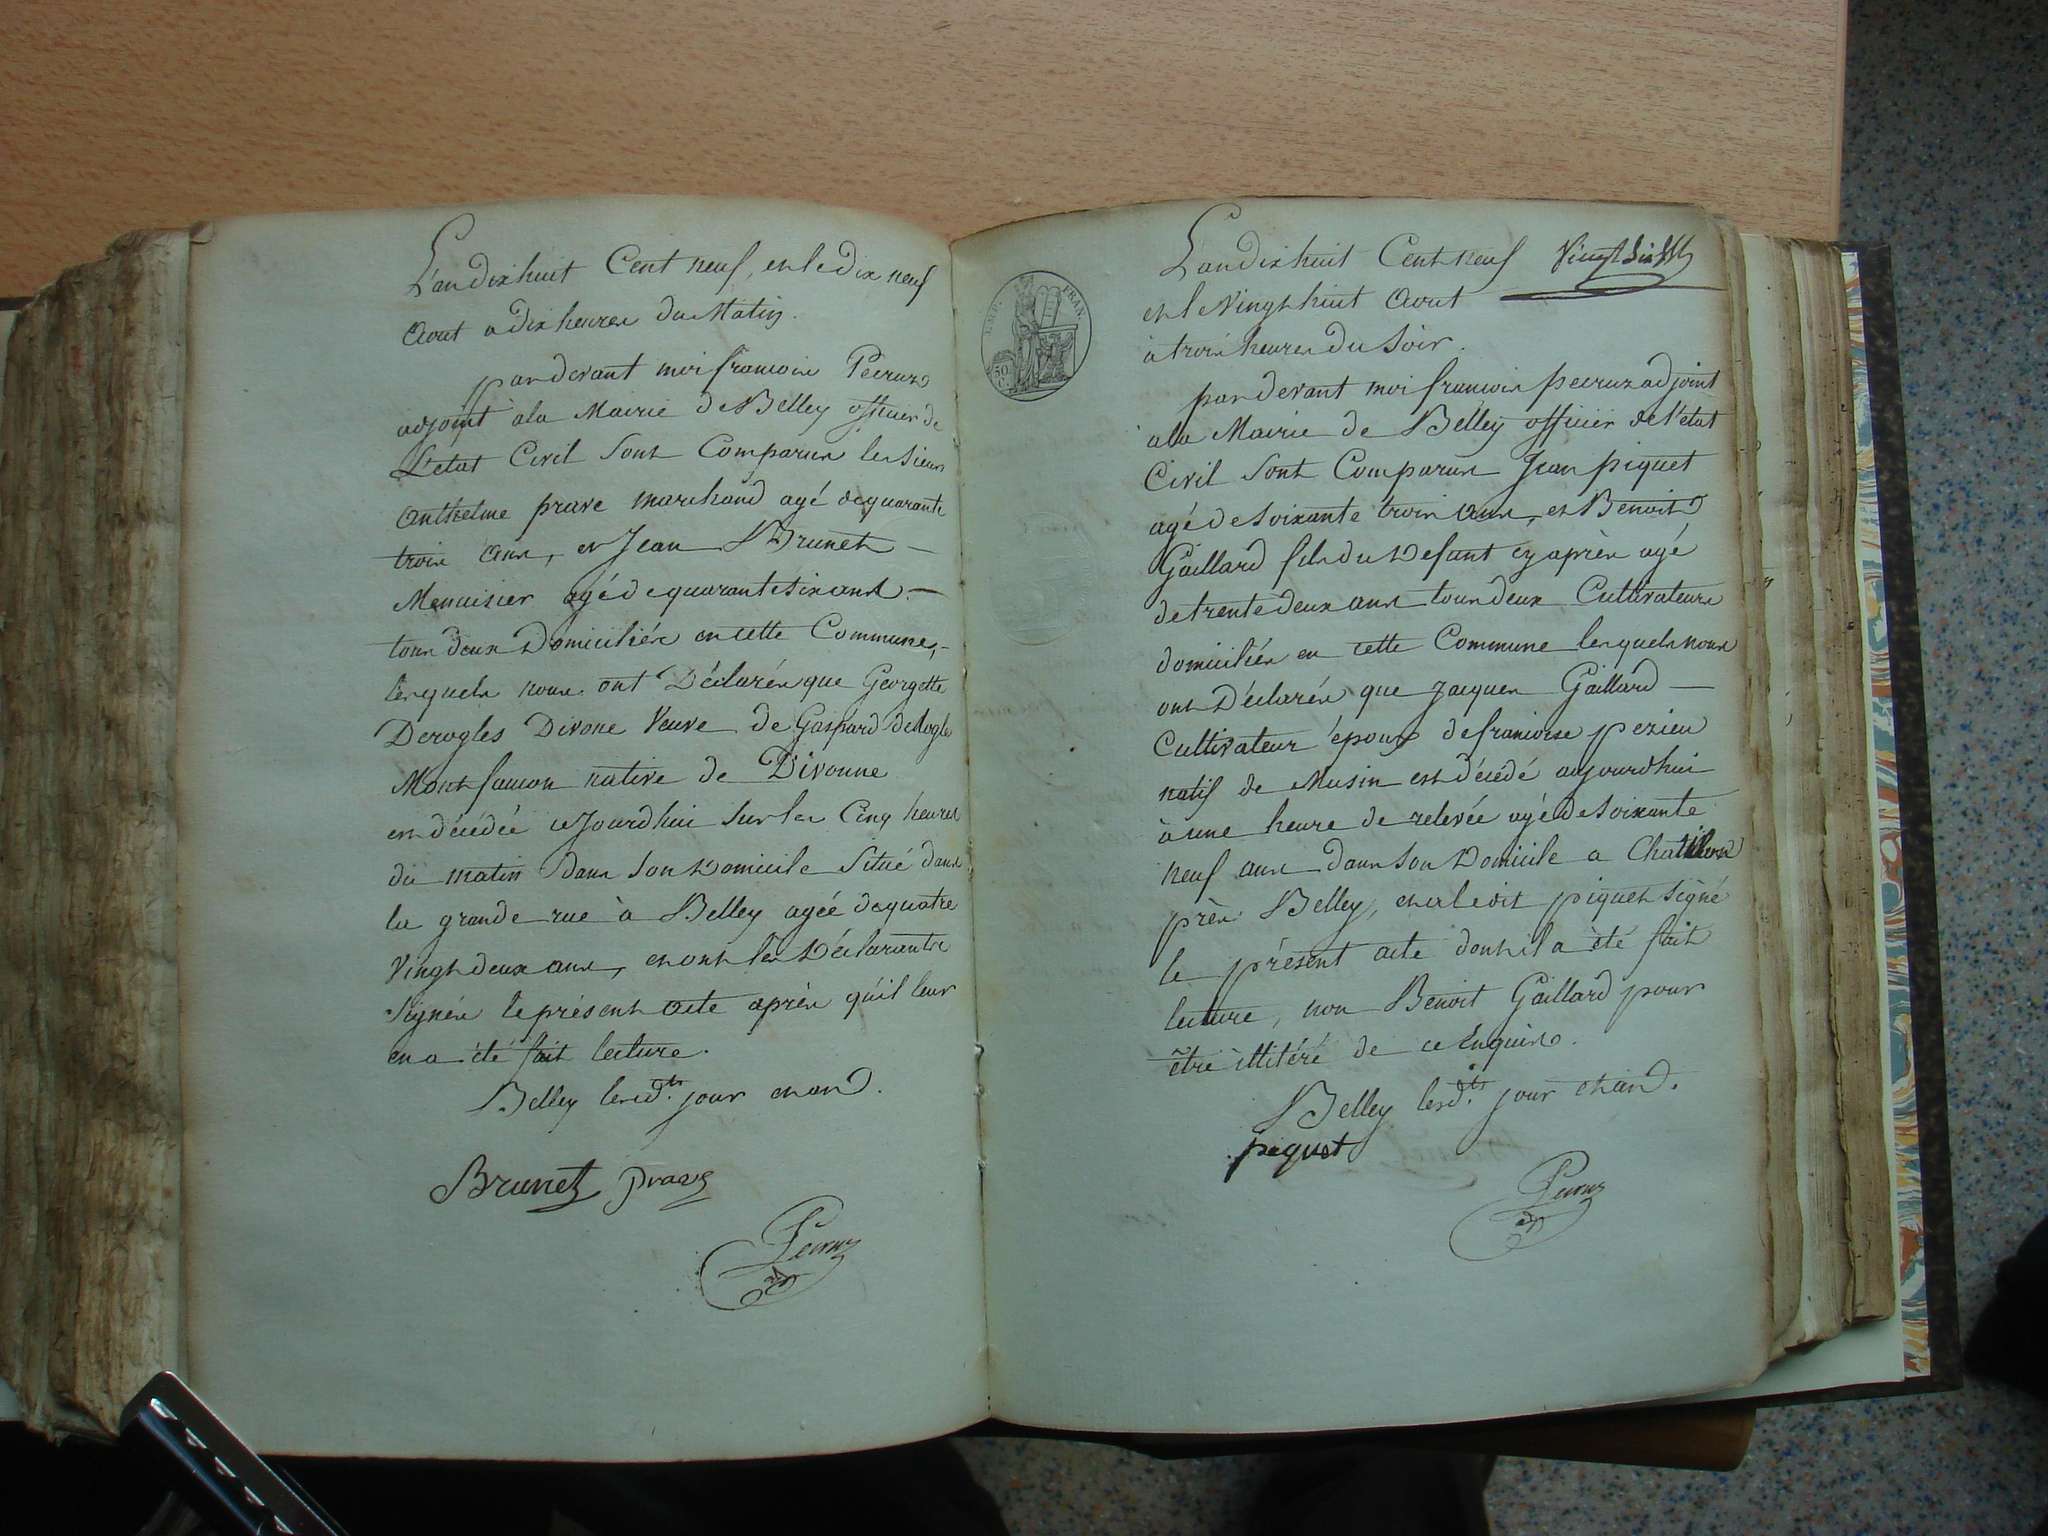 L'an dix huit Cent neuf, et le dix neuf
Aout a dix heures du Matin.
pardevant moi francois Pecruz
adjoint à la Mairie de Belley officier de
L'etat Civil Sont Comparus les sieurs
Anthelme prave marchand agé de quarante
trois ans, et Jean Brunet —
Menuisier agé de quarante six ans —
tous deux Domiciliés en cette Commune, —
lesquels nous ont Déclarés que Georgette
Derogles Divone Veuve de Gaspard deRogle
Montfaucon native de Divonne
est décédée ce Jourd'hui sur les Cinq heures
du matin dans son Domicile situé dans
la grande rue à Belley agée de quatre
Vingt deux ans, et ont les Déclarants
Signés le présent acte après qu'il leur
en a été fait lecture.
Belley lesd.ts jour et an.
Brunet prave
Pecruz
L'an dix huit Cent neuf
Vingt Six
et le Vingt huit Aout
à trois heures du Soir.
IMP. FRAN.
50
C.
pardevant moi francois pecruz adjoint
a la Mairie de Belley officier de l'etat
Civil Sont Comparus Jean piquet
agé de Soixante trois ans, et Benoit
Gaillard fils du Defunt cy après agé
de trente deux ans tous deux Cultivateurs
domiciliés en cette Commune lesquels nous
ont Déclarés que Jacques Gaillard —
Cultivateur époux de francoise pezieu
natif de Musin est décédé aujourdhui
à une heure de relevée agé de Soixante
neuf ans dans son Domicile a Chatillon
près Belley, et a ledit piquet Signé
le présent acte dont il a été fait
lecture, non Benoit Gaillard pour
être illitéré de ce Enquis.
Belley lesd.ts jour et an.
piquet
Pecruz